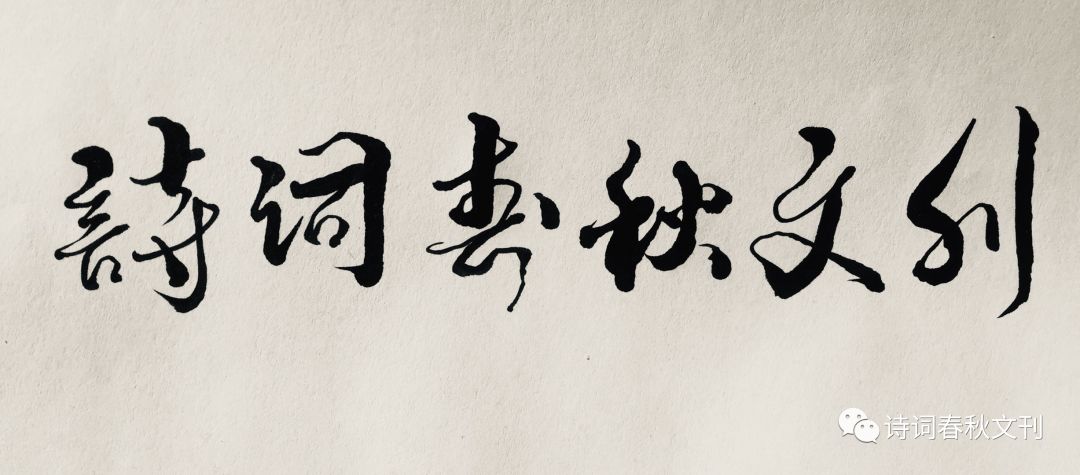 詩词春秋文刊
诗词春秋文刊